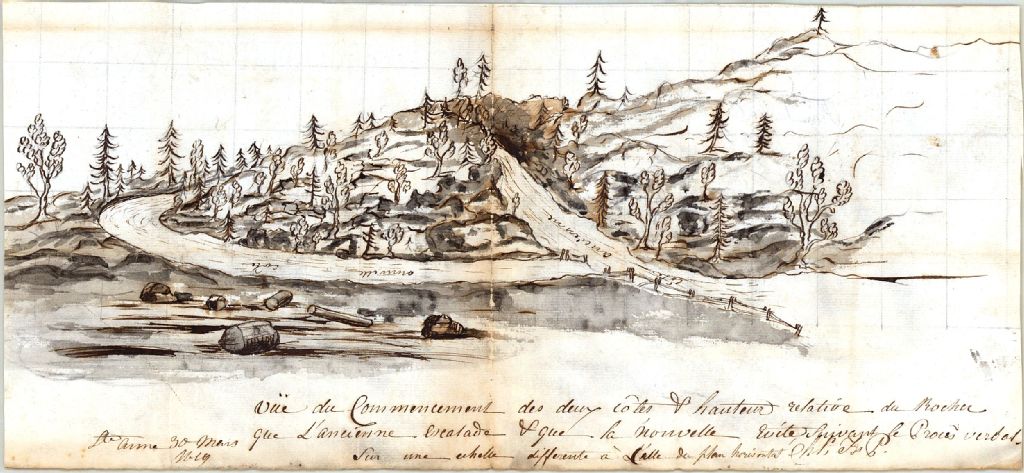 ancienne
côte
nouvelle
vüe du Commencement des deux côtes & hauteur relative du Rocher
que L'ancienne Escalade & que la nouvelle Evite Suivant le Procès verbal
Ste Anne 30 Mars
Sur une echelle differente a Celle du plan horisontal